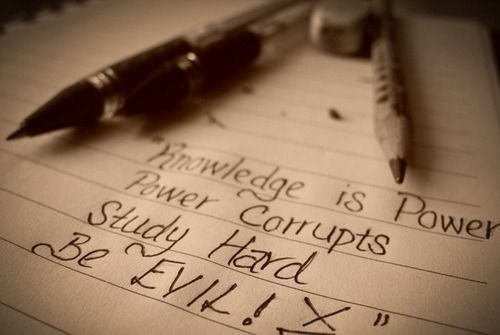 "Knowledge is Power
Power Corrupts
Study Hard
Be EVIL! X"